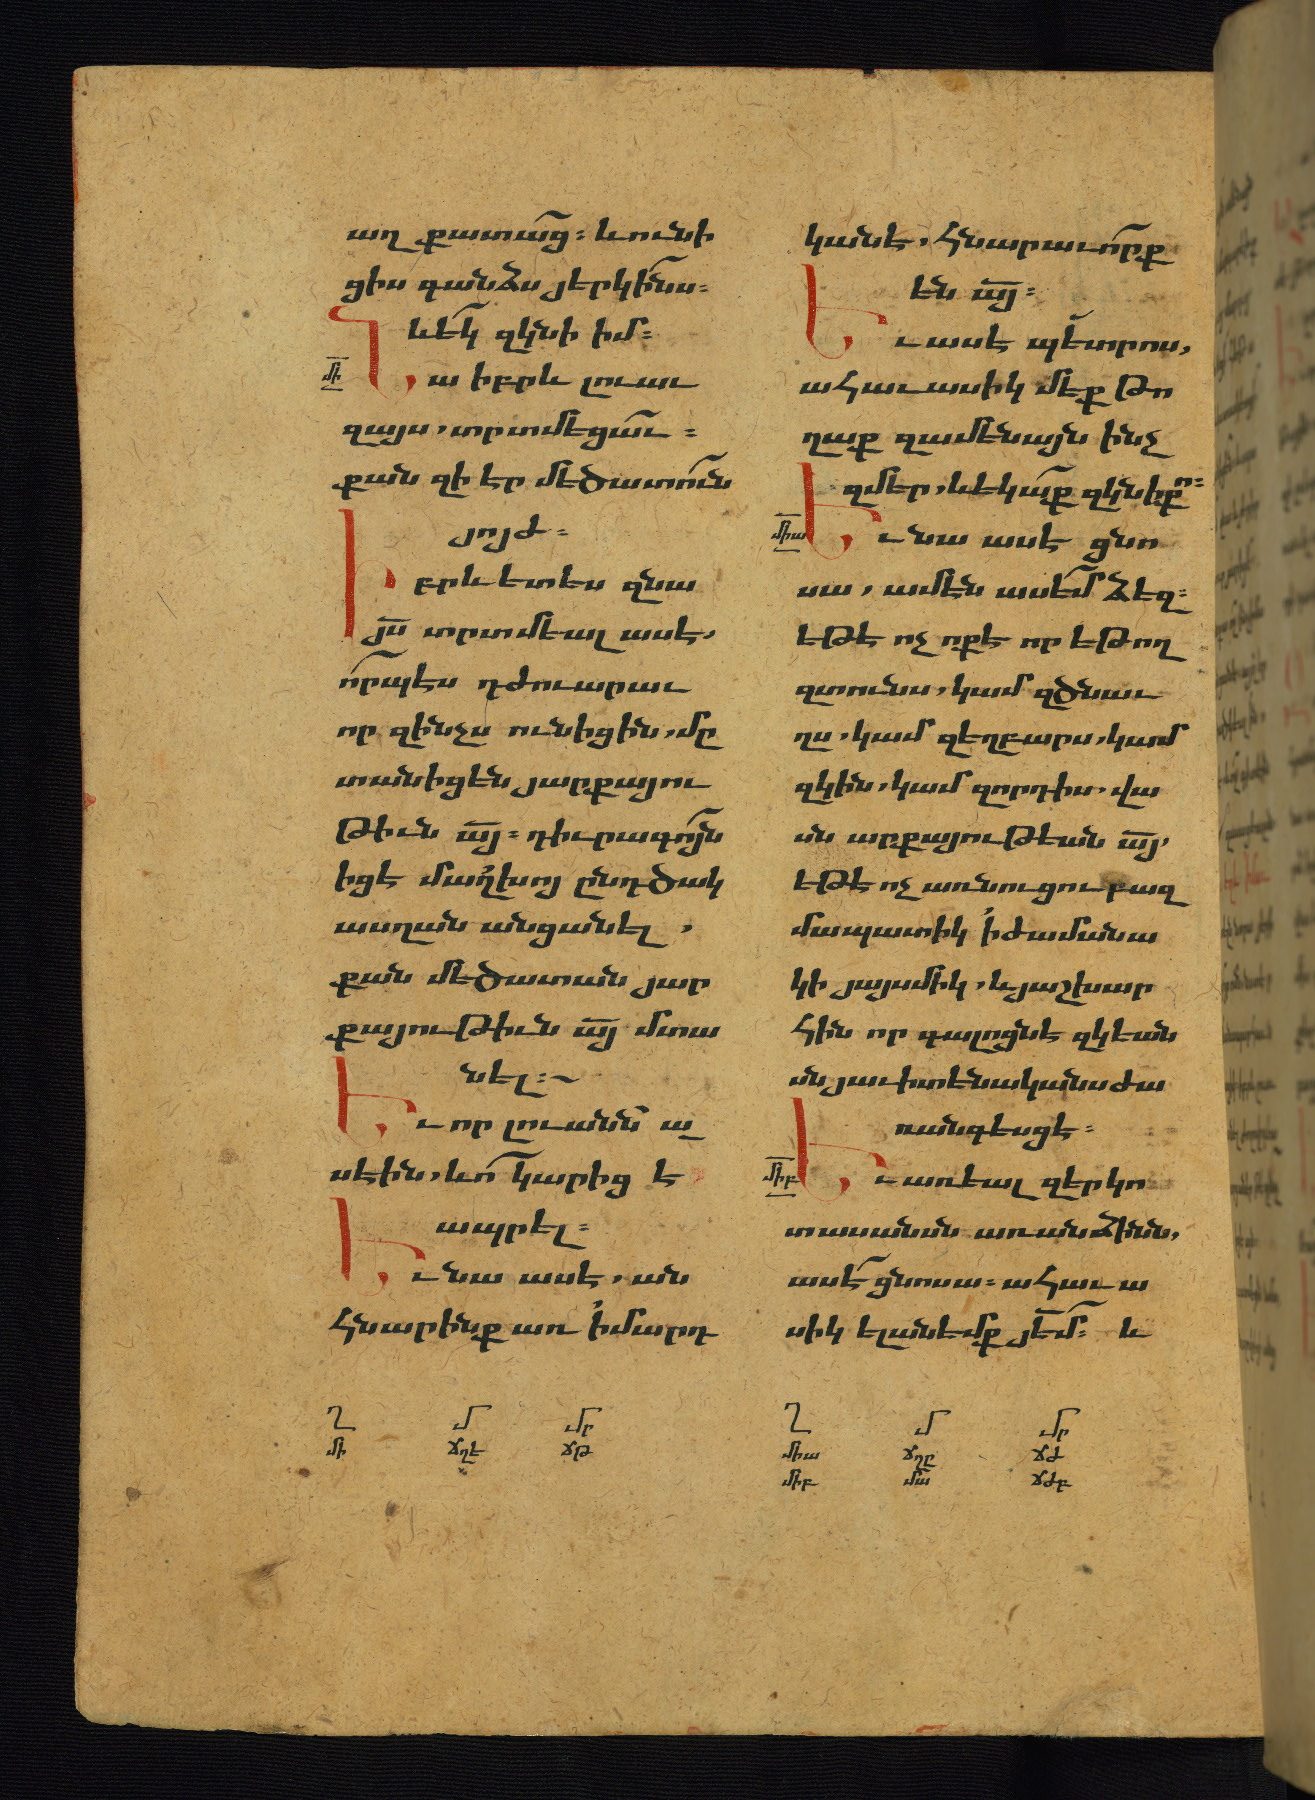 աղ քատա՟ց ։ և ունի
ցիս գանձս յերկի՟նս ։
և ե՟կ զկնի իմ ։
մի
Նա իբրև լուաւ
զայս, տրտմեցա՟ւ ։
քան զի էր մեծատո՟ւն
յոյժ ։
Իբրև ետես զնա
յ՟ս տրտմեալ ասէ,
ո՟րպէս դժուարաւ
որ զինչս ունիցին, մը
տանիցեն յարքայու
թիւն ա՟յ ։ դիւրագո՟յն
իցէ մալխոյ ընդ ծակ
ասղան անցանել ,
քան մեծատան յար
քայութիւն ա՟յ մտա
նել ։
Եւ որ լուանն ա
սեին, և ո՟ կարից է
ապրել ։
Եւ նա ասէ, ան
հնարինք առ ի մարդ
Ղ Մ Մր
մի ճղէ ճթ
կանէ, հնարաւո՟րք
են ա՟յ ։
Եւ ասէ պետրոս,
ահաւասիկ մեք թո
ղաք զամենայն ինչ
զմեր, և եկա՟ք զկնի քո ։
միա
Եւ նա ասէ ցնո
սա, ամէն ասե՟մ ձեզ ։
եթե ոչ ոք է որ եթող
զտունս, կամ զծնաւ
ղս, կամ զեղբարս, կամ
զկին, կամ զորդիս, վա
սն արքայութեան ա՟յ,
եթե ոչ առնուցու բազ
մապատիկ ի ժամանա
կի յայսմիկ, և յաշխար
հին որ գալոցն է զկեան
սն յաւիտենականս ժա
ռանգեսցե ։
միբ
Եւ առեալ զերկո
տասանսն առանձինն,
ասէ՟ ցնոսա ։ ահաւա
սիկ ելանեմք յե՟մ ։ և
Ղ Մ Մր
միա ճղը ճժ
միբ մա ճժբ